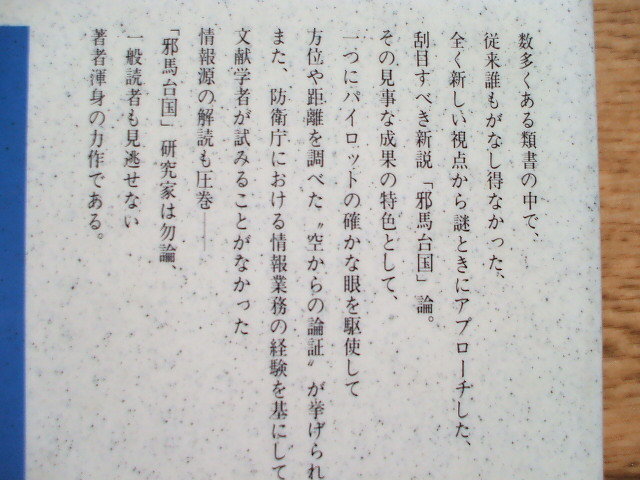 数多くある類書の中で、
従来誰もがなし得なかった、
全く新しい視点から謎ときにアプローチした、
刮目すべき新説「邪馬台国」論。
その見事な成果の特色として、
一つにパイロットの確かな眼を駆使して
方位や距離を調べた〝空からの論証〟が挙げられ
また、防衛庁における情報業務の経験を基にして
文献学者が試みることがなかった
情報源の解読も圧巻――
「邪馬台国」研究家は勿論、
一般読者も見逃せない
著者渾身の力作である。